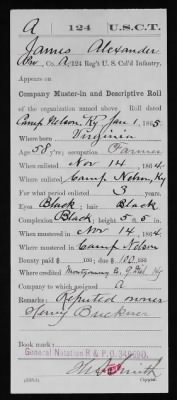 A | 124 | U.S.C.T.
James Alexander
, Co. A, 124 Reg't U. S. Col'd Infantry.
Appears on
Company Muster-in and Descriptive Roll
of the organization named above. Roll dated
Camp Nelson, Ky Jan 1, 1865
Where born Virginia
Age 58 y'rs; occupation Farmer
When enlisted Nov 14, 1864.
Where enlisted Camp Nelson, Ky
For what period enlisted 3 years.
Eyes Black; hair Black
Complexion Black; height 5 ft. 5 in.
When mustered in Nov 14, 1864.
Where mustered in Camp Nelson
Bounty paid $ 100; due $ 100
Where credited Montgomery Co, 9 Dist Ky
Company to which assigned A
Remarks: Reputed owner
Henry Buckner
Book mark:
General Notation R & P O
Smith
Copyist.